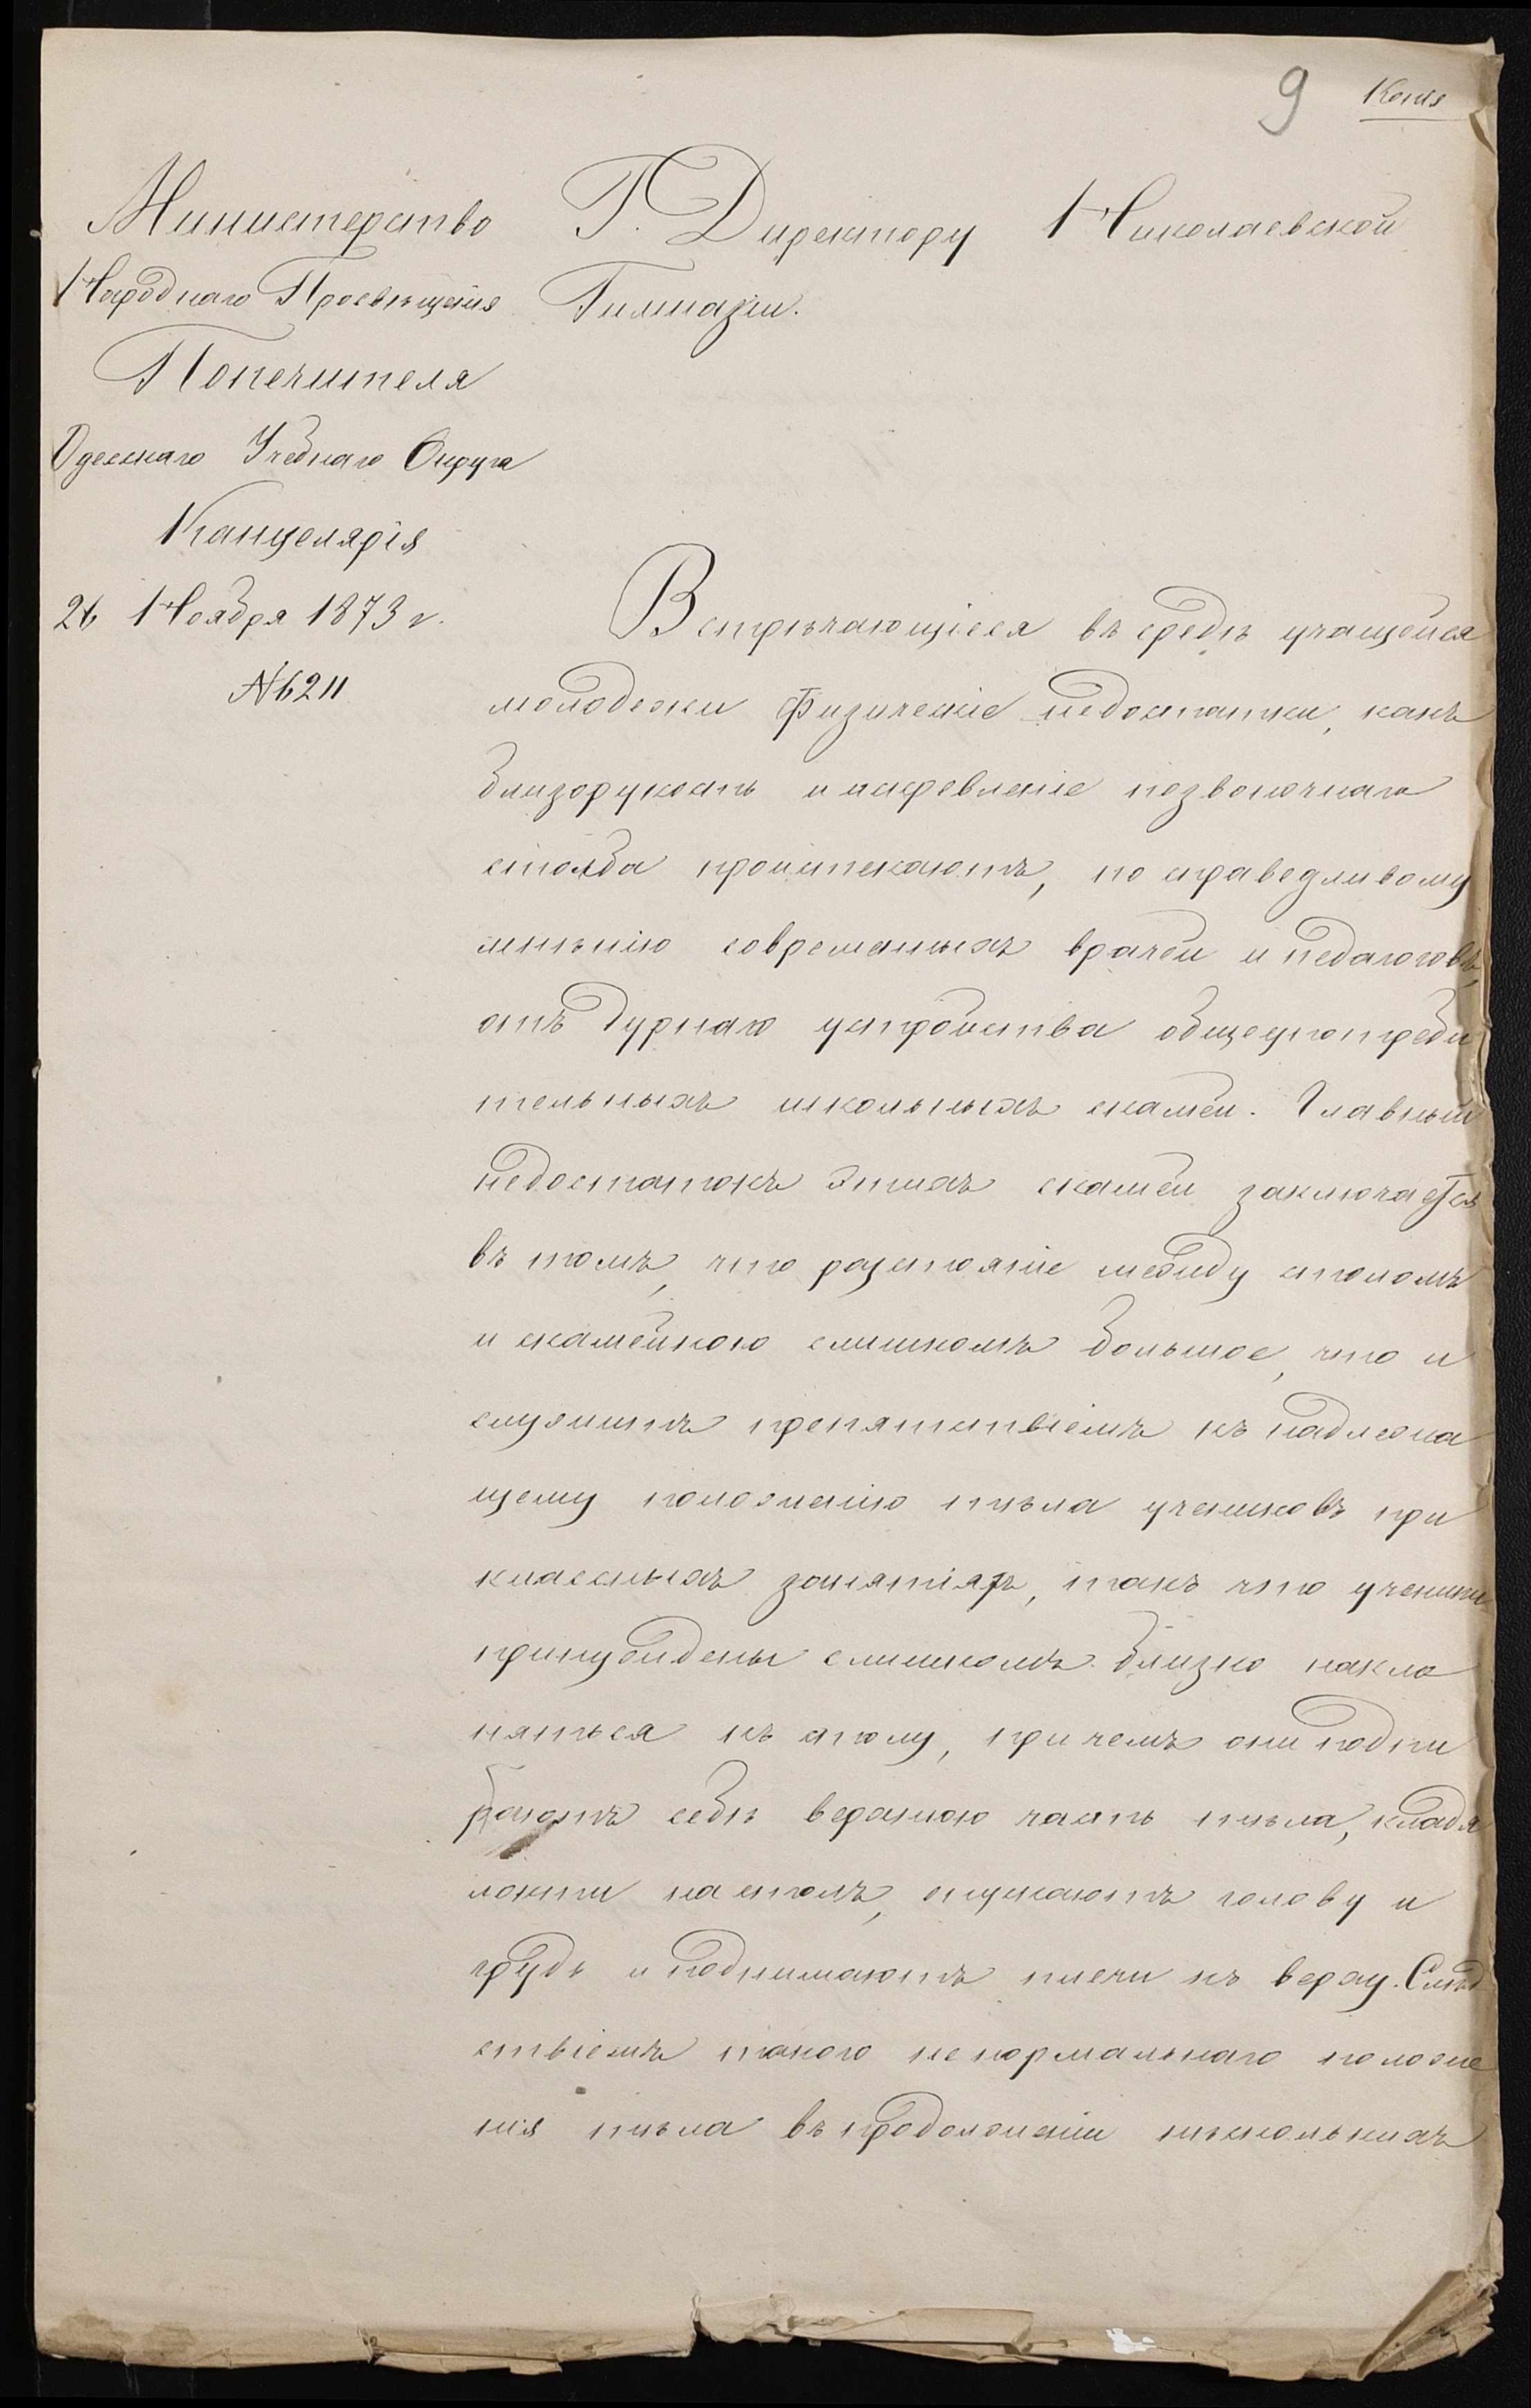 9 Копія
Министерство
Народнаго Просвѣщенія
Попечителя
Одесскаго Учебнаго Округа
Канцелярія
26 Ноября 1873 г.
№6211
Г. Директору Николаевской
Гимназіи.
Встрѣчающіеся въ средѣ учащейся
молодежи физическіе недостатки, какъ
близорукость и искревленіе позвоночнаго
столба проистекаютъ, по справедливому
мнѣнію современныхъ врачей и педагоговъ,
отъ дурнаго устройства общеупотреби
тельныхъ школьныхъ скамей. Главный
недостатокъ этихъ скамей заключается
въ томъ, что разстояніе между столомъ
и скамейкою слишкомъ большое, что и
служитъ препятствіемъ къ надлежа
щему положенію тѣла учениковъ при
классныхъ занятіяхъ, такъ что ученики
принуждены слишкомъ близко накло
няться къ столу, при чемъ они подпи
раютъ себѣ верхнюю часть тѣла, кладя
локти на столъ, опускаютъ голову и
грудь и поднимаютъ плечи къ верху. Слѣд
ствіемъ такого ненормальнаго положе
нія тѣла въ продолженіи нѣсколькихъ